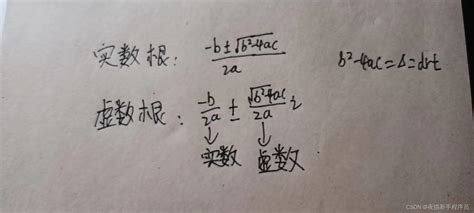 实数根： (-b±√(b²-4ac))/(2a)    b²-4ac=Δ=drt
虚数根： -b/(2a) ± √(b²-4ac)/(2a) i
↓ ↓
实数 虚数
CSDN @夜猫新手程序员